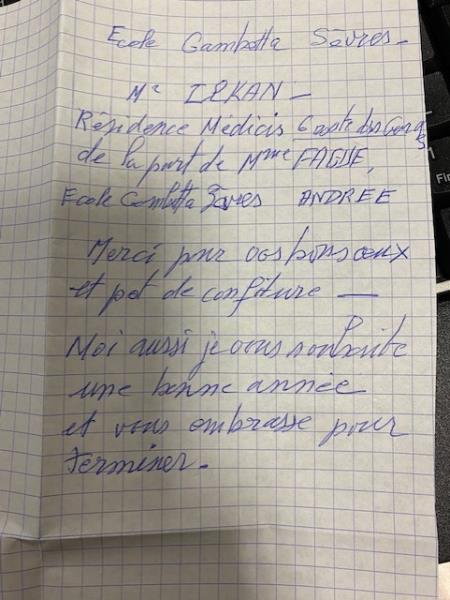 Ecole Gambetta Sèvres -
Mr ILKAN -
Résidence Médicis 6
de la part de Mme FAGUE,
Ecole Gambetta Sèvres ANDREE
Merci pour vos bons voeux
et pot de confiture —
Moi aussi je vous souhaite
une bonne année
et vous embrasse pour
terminer.